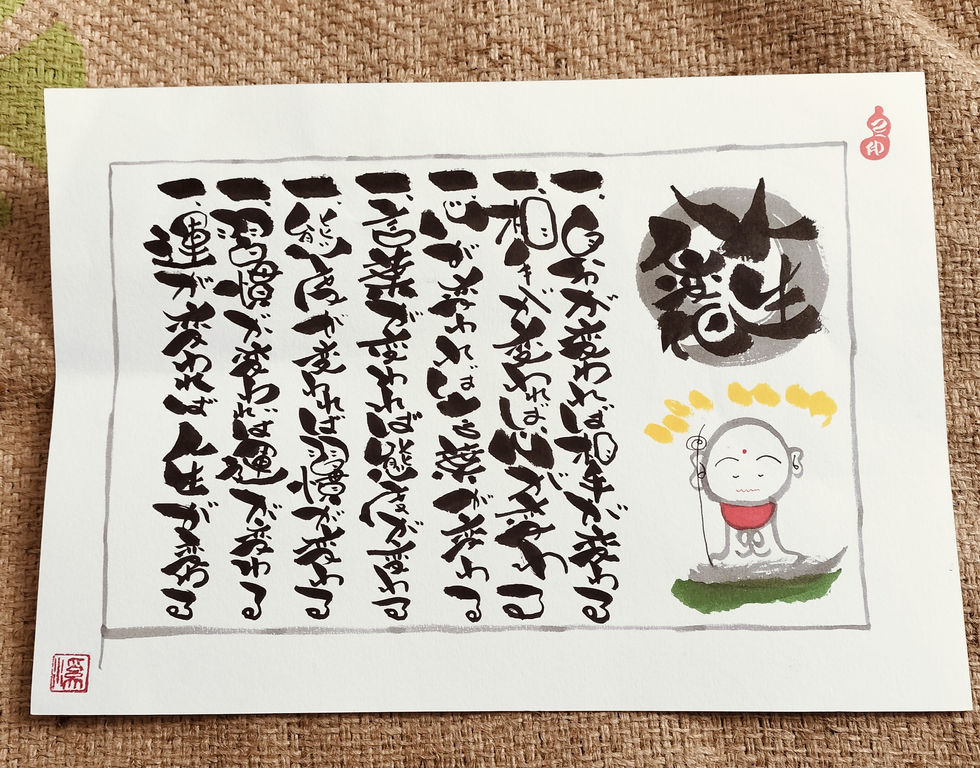 一、自分が変われば相手が変わる
一、相手が変われば心が変わる
一、心が変われば言葉が変わる
一、言葉が変われば態度が変わる
一、態度が変われば習慣が変わる
一、習慣が変われば運が変わる
一、運が変われば人生が変わる